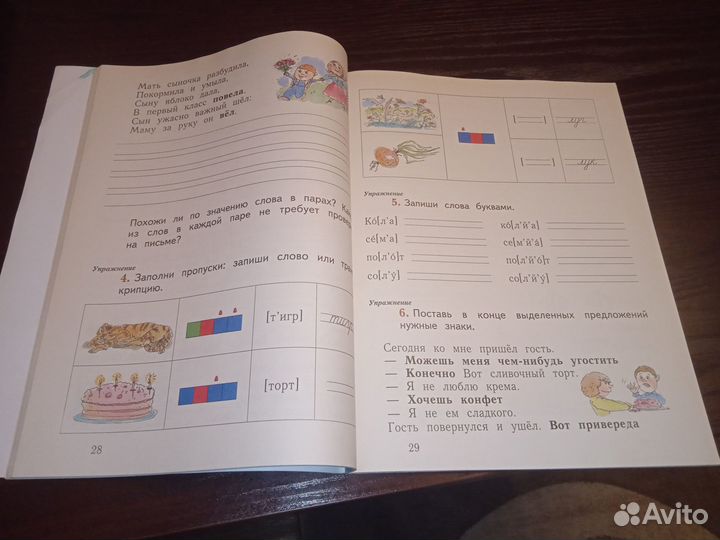 Мать сыночка разбудила,
Покормила и умыла,
Сыну яблоко дала,
В первый класс повела.
Сын ужасно важный шёл:
Маму за руку он вёл.
Похожи ли по значению слова в парах?
из слов в каждой паре не требует
на письме?
Упражнение
4. Заполни пропуски: запиши слово или
крипцию.
[т'игр]
тигр
[торт]
28
луг
лук
Упражнение
5. Запиши слова буквами.
Ко́[л'а] ко́[л'й'а]
се́[м'а] се[м'й'а́]
по[л'о́]т по[л'й'о́]т
со[л'у́] со[л'й'у́]
Упражнение
6. Поставь в конце выделенных предложений
нужные знаки.
Сегодня ко мне пришёл гость.
— Можешь меня чем-нибудь угостить
— Конечно Вот сливочный торт.
— Я не люблю крема.
— Хочешь конфет
— Я не ем сладкого.
Гость повернулся и ушёл. Вот привереда
29
Avito